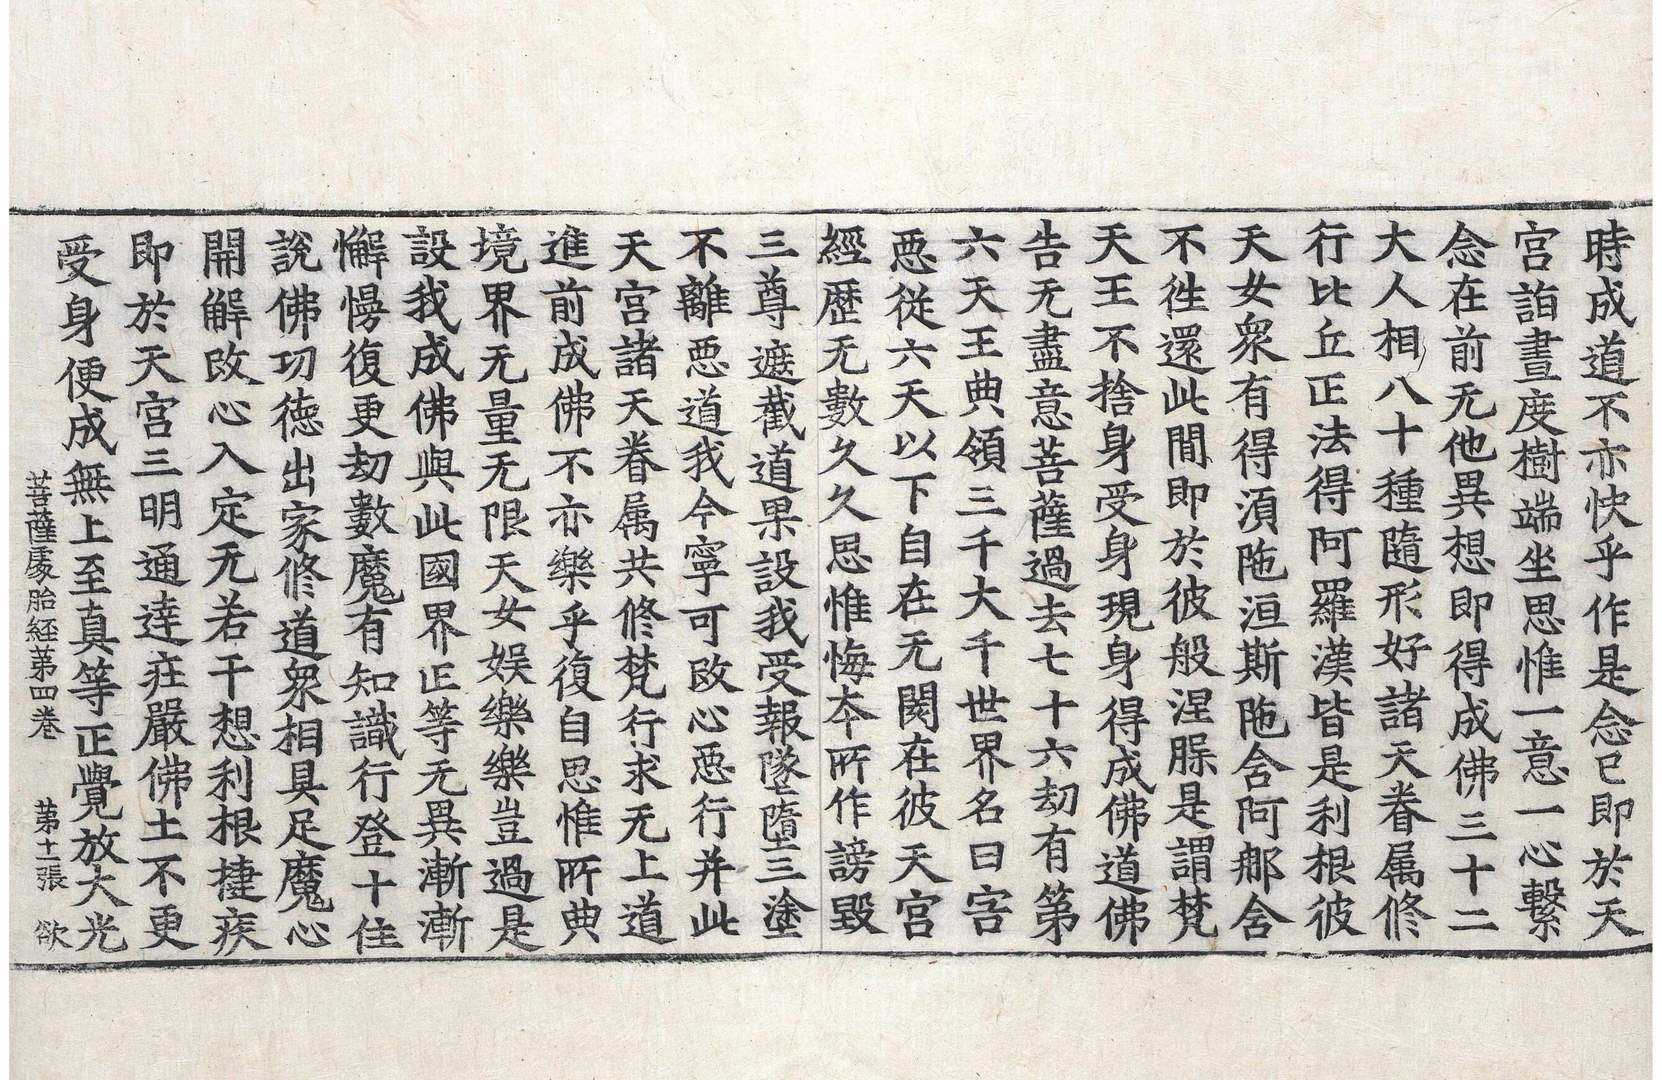 時成道不亦快乎作是念已即於天
宮詣晝度樹端坐思惟一意一心繫
念在前无他異想即得成佛三十二
大人相八十種隨形好諸天眷属修
行比丘正法得阿羅漢皆是利根彼
天女衆有得湏陁洹斯陁含阿那含
不徃還此間即於彼般涅槃是謂梵
天王不捨身受身現身得成佛道佛
告无盡意菩薩過去七十六劫有第
六天王典領三千大千世界名曰害
惡從六天以下自在无閡在彼天宮
經歷无數久久思惟悔夲所作謗毀
三尊遮截道果設我受報墜墮三塗
不離惡道我今寧可改心惡行并此
天宮諸天眷属共修梵行求无上道
進前成佛不亦樂乎復自思惟所典
境界无量无限天女娛樂樂豈過是
設我成佛與此國界正等无異漸漸
懈慢復更劫數魔有知識行登十住
說佛功德出家修道衆相具足魔心
開解改心入定无若干想利根捷疾
即於天宮三明通達莊嚴佛土不更
受身便成無上至真等正覺放大光
菩薩處胎経第四卷 第十一張 欲